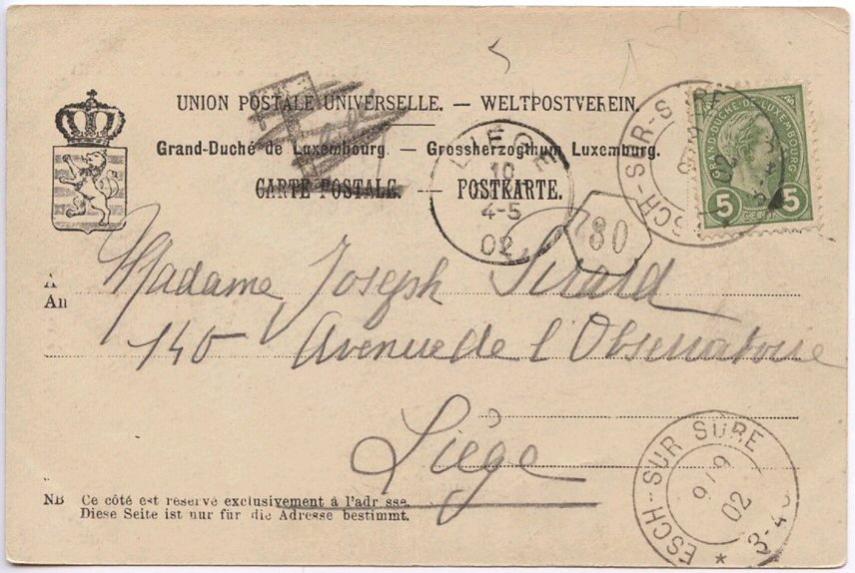 UNION POSTALE UNIVERSELLE. — WELTPOSTVEREIN.
Grand-Duché de Luxembourg. — Grossherzogthum Luxemburg.
CARTE POSTALE. — POSTKARTE.
LIEGE
10
4-5
02
80
ESCH-SUR-SURE
GRAND-DUCHÉ-DE-LUXEMBOURG
5 5
A
An
Madame Joseph
140 Avenue de l'Observatoire
Liége
ESCH-SUR SURE
9/9
02
3-4
NB Ce côté est réservé exclusivement à l'adr sse.
Diese Seite ist nur für die Adresse bestimmt.